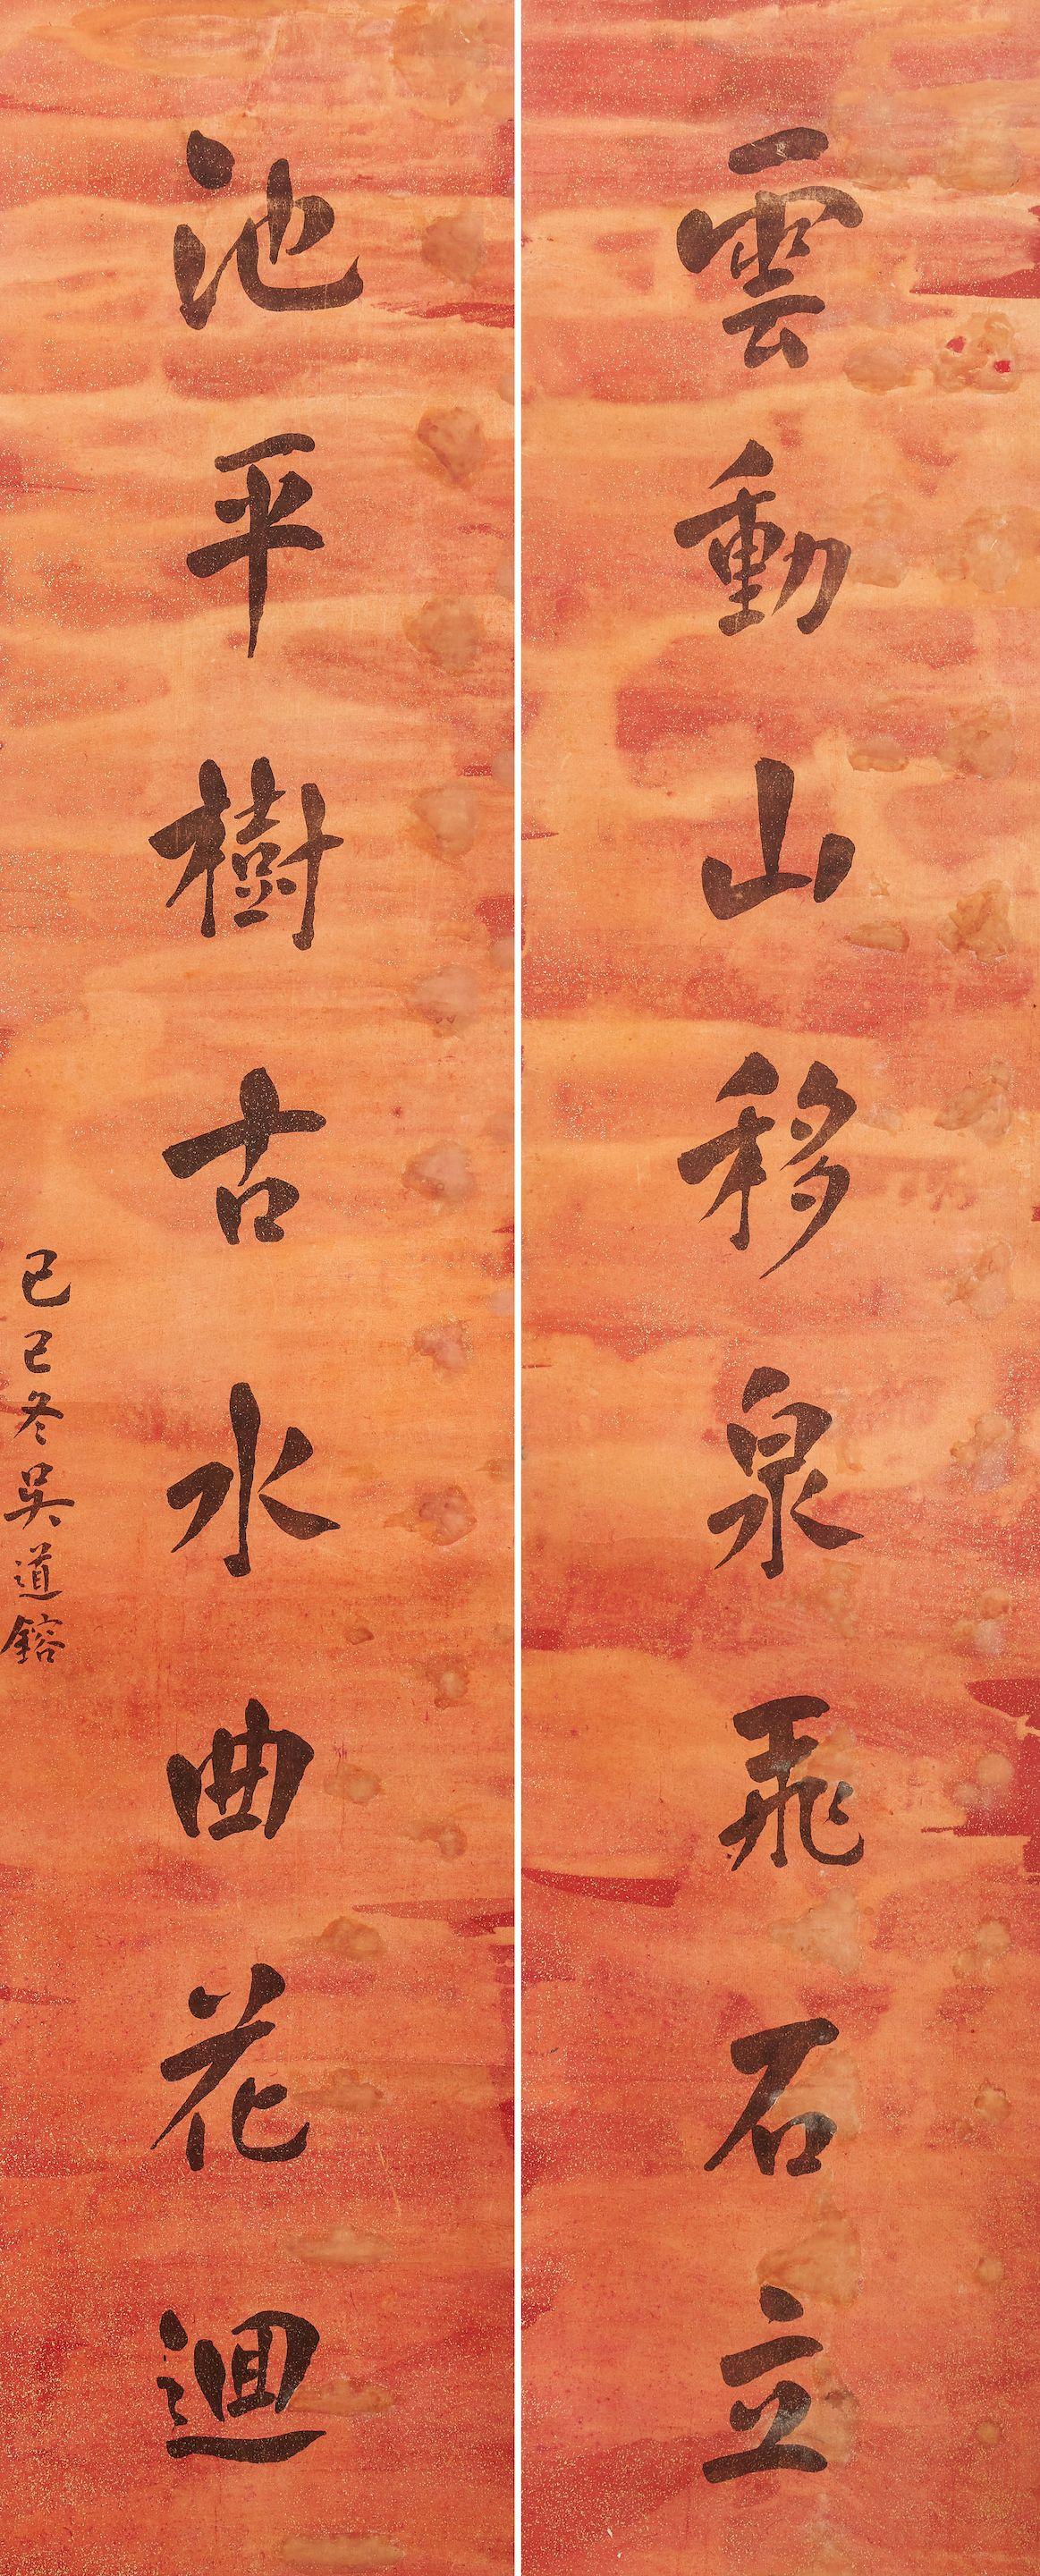 雲動山移泉飛石立
池平樹古水曲花迴
己巳冬吳道鎔